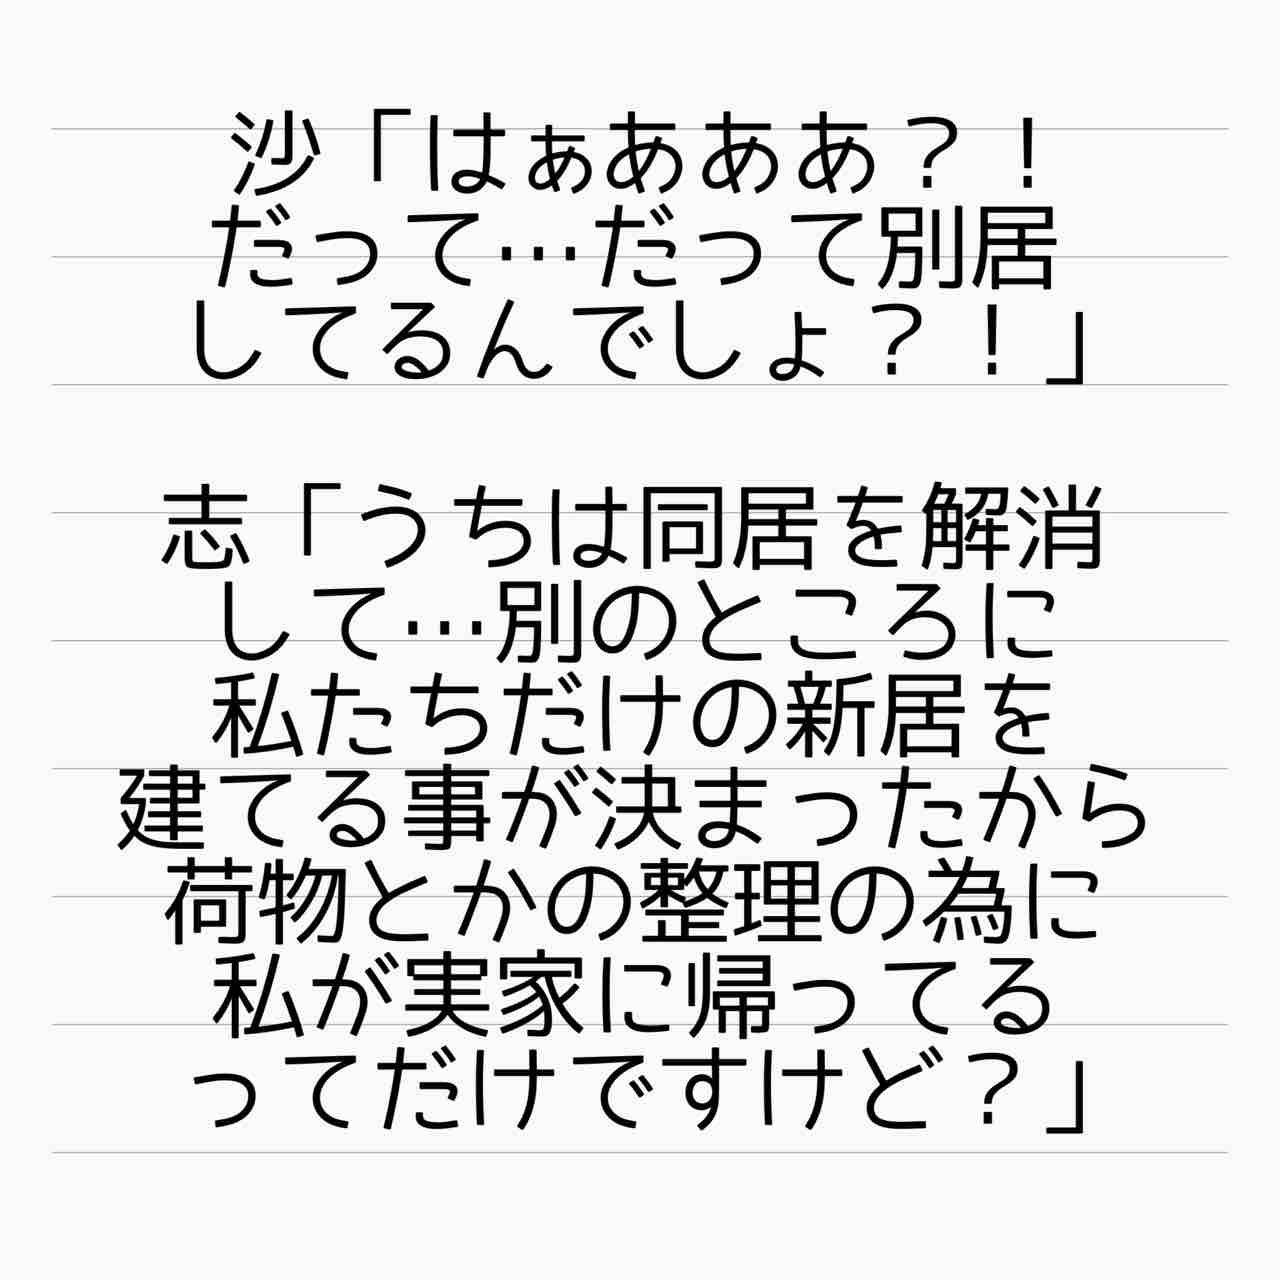 沙「はぁあああ？！
だって…だって別居
してるんでしょ？！」
志「うちは同居を解消
して…別のところに
私たちだけの新居を
建てる事が決まったから
荷物とかの整理の為に
私が実家に帰ってる
ってだけですけど？」